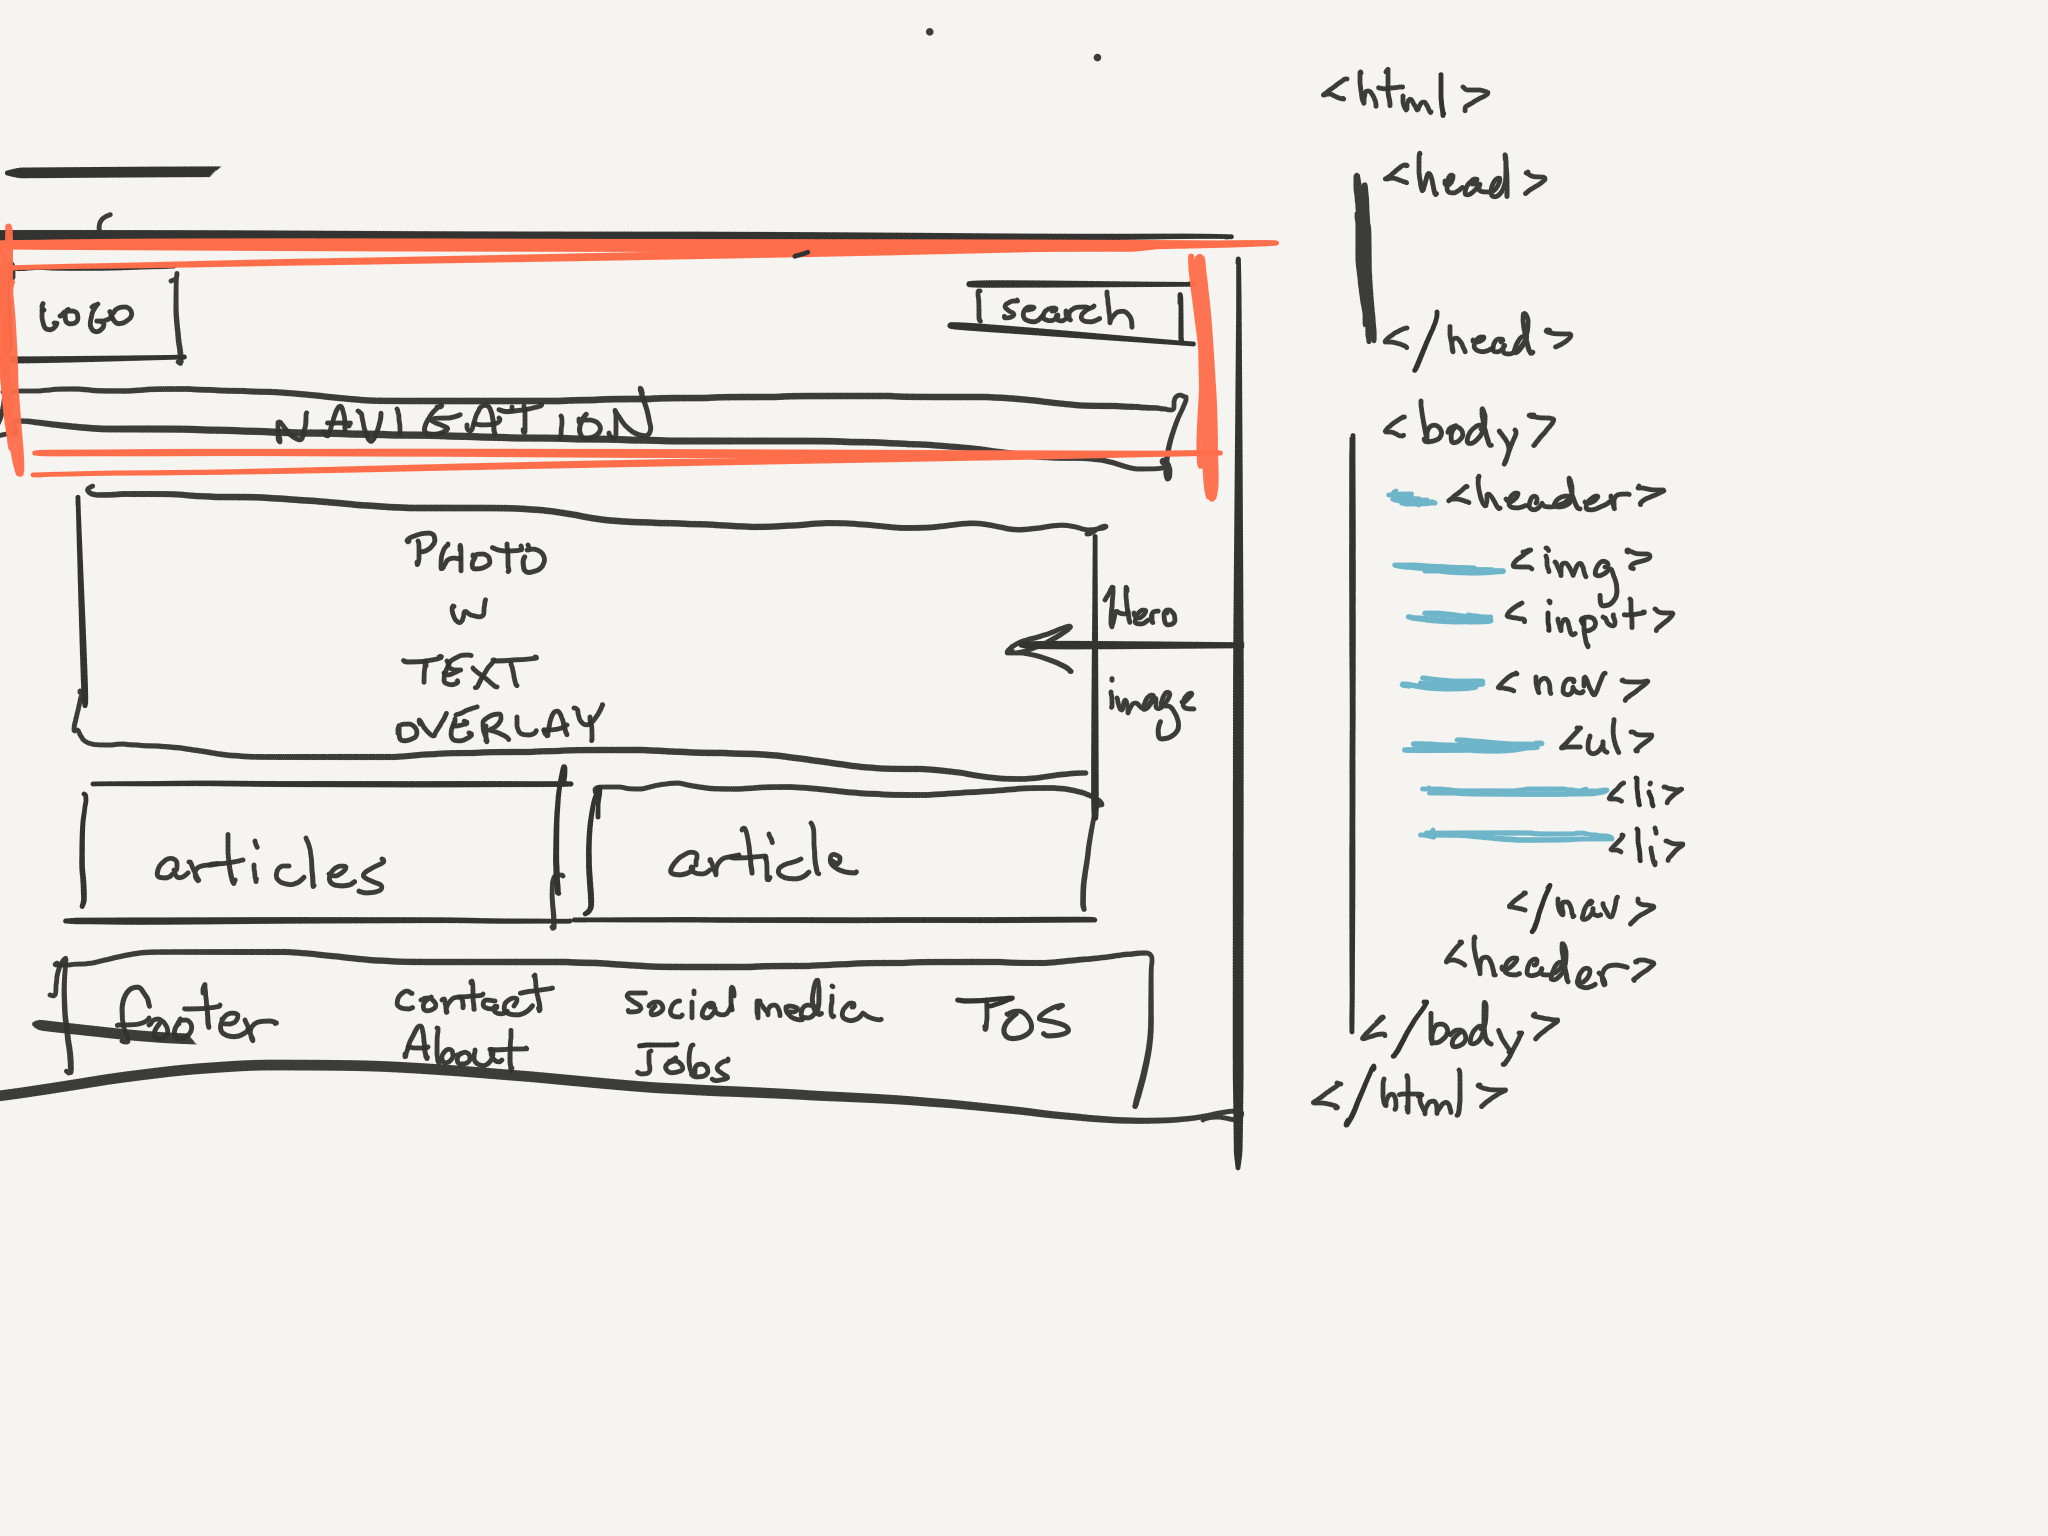 LOGO
search
NAVIGATION
PHOTO
W
TEXT
OVERLAY
Hero
image
articles
article
footer
contact
About
social media
Jobs
TOS
<html>
<head>
</head>
<body>
<header>
<img>
<input>
<nav>
<ul>
<li>
<li>
</nav>
<header>
</body>
</html>